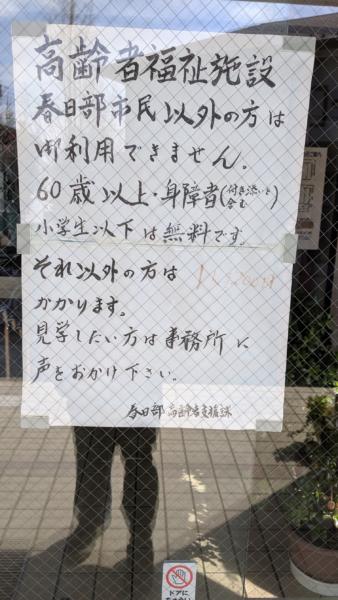 高齢者福祉施設
春日部市民以外の方は
御利用できません。
60歳以上・身障者(付き添いを含む)
小学生以下は無料です。
それ以外の方は 1人200円
かかります。
見学したい方は事務所に
声をおかけ下さい。
春日部 高齢者支援課
ドアに